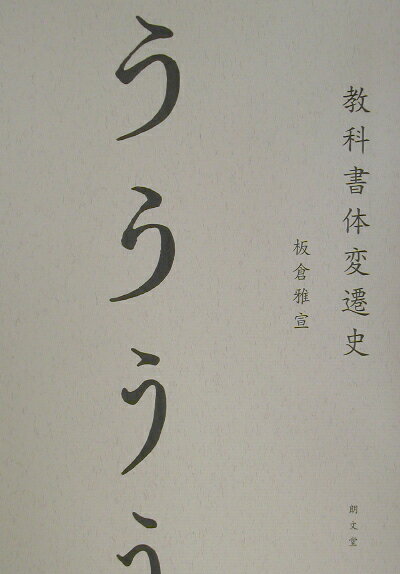 教科書体変遷史
板倉雅宣
うううう
朗文堂